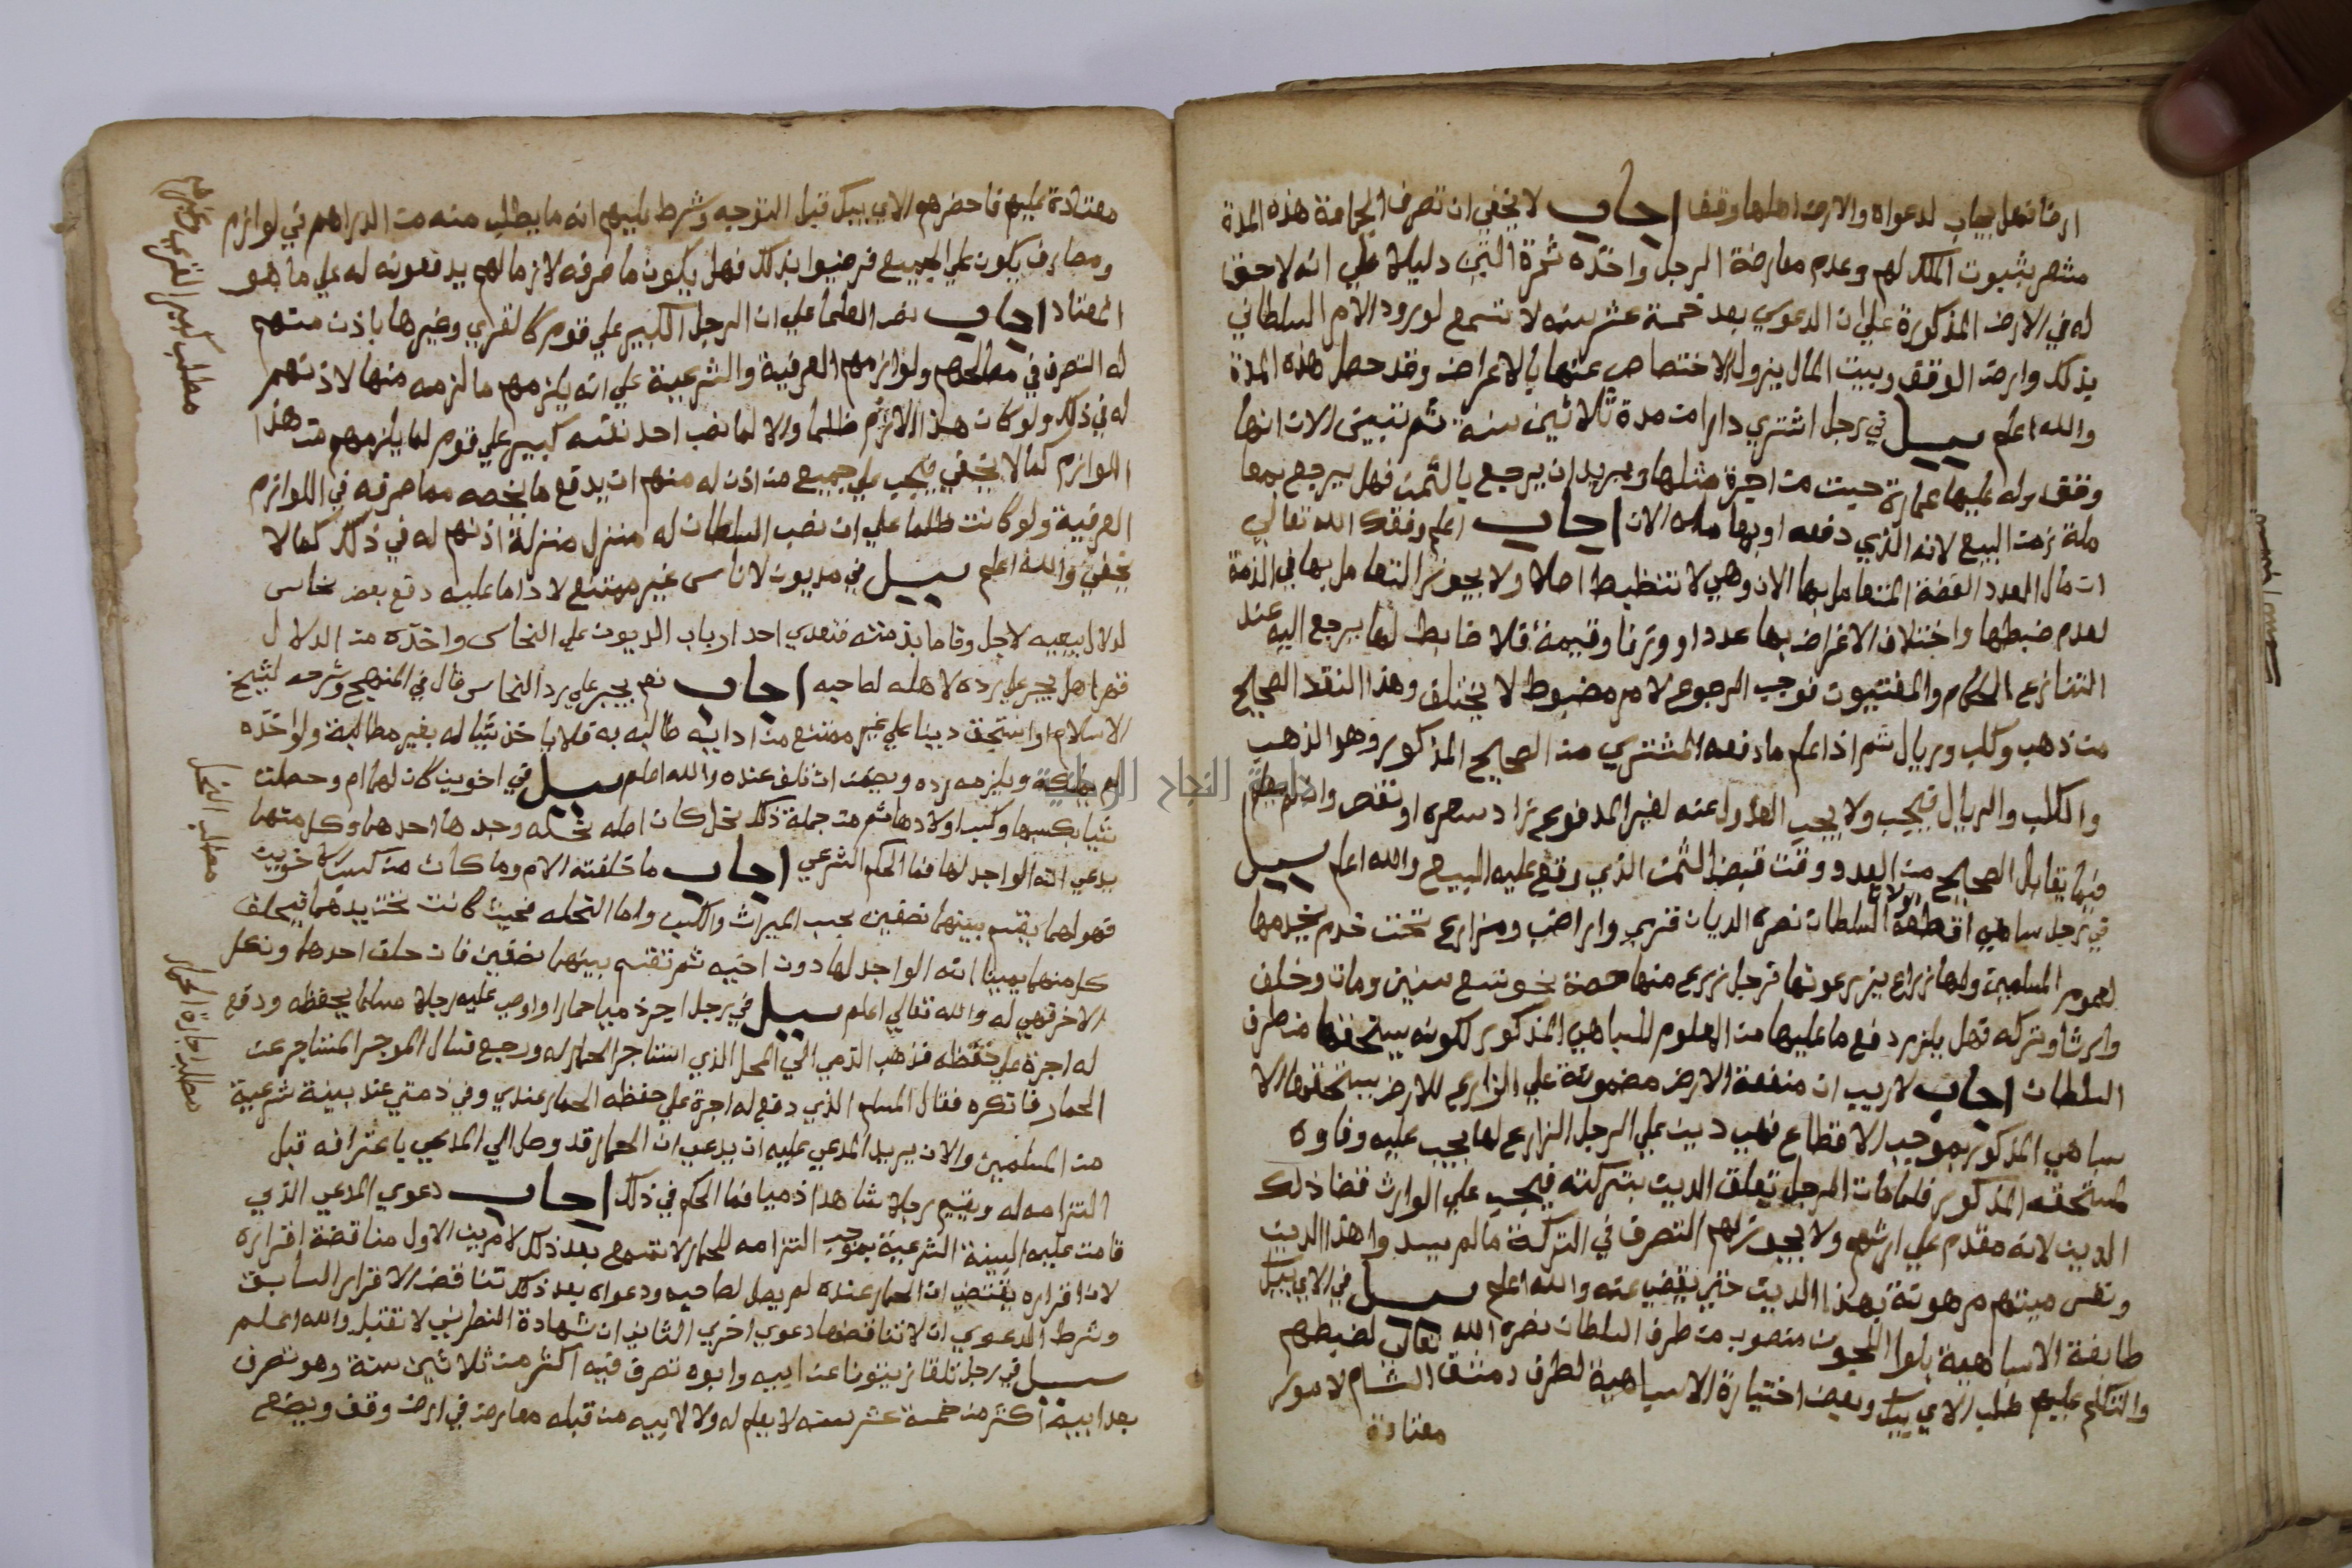 ارضا فهل يجاب لدعواه والارض اصلها وقف اجاب لا يخفي ان تصرف الجماعة هذه المدة
مشعر بثبوت الملك لهم وعدم معارضة الرجل واخذه ثمرة التين دليلا علي انه لا حق
له في الارض المذكورة علي ان الدعوي بعد خمسة عشر سنه لا تسمع لورود الامر السلطاني
بذلك وارض الوقف وبيت المال يزول الاختصاص عنها بالاعراض وقد حصل هذه المدة
والله اعلم سيل في رجل اشتري دارا من مدة ثلاثين سنة ثم تبين الان انها
وقف وله عليها عمارة حيث من اجرة مثلها ويريد ان يرجع بالثمن فهل يرجع بمعا
ملة زمن البيع لانه الذي دفعه او بمعاملة الان اجاب اعلم وفقك الله تعالي
ان مال العدد الفضة المتعامل بها الان وهي لا تنضبط اصلا ولا يجوز التعامل بها في الذمة
لعدم ضبطها واختلاف الاغراض بها عددا ووزنا وقيمة فلا ضابط لها يرجع اليه عند
التنازع الحكام والمفتيون فوجب الرجوع لامر مضبوط لا يختلف وهذا النقد الصحيح
من ذهب وكلب وريال ثم اذا علم ما دفعه المشتري من الصحيح المذكور وهو الذهب
والكلب والريال فيجب ولا يجب العدول عنه لغير المدفوع زاد سعره او نقص وان لم يعلم
فبما يقابل الصحيح من العدد وقت قبض الثمن الذي وقع عليه المبيع والله اعلم سيل
في رجل سباهي اقطعه مولانا السلطان نصره الديان قري واراضي ومزارع تحت خدم يخدمها
لعموم المسلمين ولها زراع يزرعونها فرجل زرع منها حصة نحو تسع سنين ومات وخلف
وارثا وتركه فهل يلزم دفع ما عليها من المعلوم للسباهي المذكور لكونه يستحقها من طرف
السلطان اجاب لا ريب ان منفعة الارض مضمونة علي الزارع للارض يستحقها الا
سباهي المذكور بموجب الاقطاع فهي دين علي الرجل الزارع لها يجب عليه وفاوه
لمستحقه المذكور فلما مات الرجل تعلق الدين بتركته فيجب علي الوارث قضا ذلك
الدين لانه مقدم علي ارثهم ولا يجوز لهم التصرف في التركة ما لم يسدوا هذا الدين
ونفس ميتهم مرهونة بهذا الدين حتي يقضي عنه والله اعلم سيل في الاي بيك
طايفة الاسباهية بلوا اللجون منصوب من طرف السلطان نصره الله تعالي لضبطهم
والتكلم عليهم طلب الاي بيك وبعض اختيارة الاسباهية لطرف دمشق الشام لامور
معتادة
معتادة عليهم فاحضرهم الاي بيك قبل التوجه وشرط عليهم انه ما يطلب منه من الدراهم في لوازم
ومصارف يكون علي الجميع فرضيوا بذلك فهل يكون ما صرفه لازما لهم يدفعونه له علي ما هو
المعتاد اجاب نص العلما علي ان الرجل الكبير علي قوم كالقري وغيرها باذن منهم
له التصرف في مصالحهم ولوازمهم العرفية والشرعية علي انه يلزمهم ما لزمه منها لاذنهم
له في ذلك ولو كان هذا اللازم ظلما والا لما نصب احد نفسه كبير علي قوم لما يلزمهم من هذا
اللوازم كما لا يخفي فيجب علي جميع من اذن له منهم ان يدفع ما يخصه مما صرفه في اللوازم
العرفية ولو كانت ظلما علي ان نصب السلطان له منزل منزلة اذنهم له في ذلك كما لا
يخفي والله اعلم سيل في مديون لاناس غير ممتنع لاداما عليه دفع بعض نحاس
لدلال يبيعه لاجل وفا ما بذمته فتعدي احد ارباب الديون علي النحاس واخذه من الدلال
قهرا هل يجبر علي رده لاهله لصاحبه اجاب نعم يجبر علي رد النحاس قال في المنهج وشرحه لشيخ
الاسلام او استحق دينا علي غير ممتنع من ادايه طالبه به فلا ياخذ شيا له بغير مطالبة ولو اخذه
لم يملكه ويلزمه رده ويضمن ان تلف عنده والله اعلم سيل في اخوين كان لهما ام وحصلت
شيا بكسبها وكسب اولادها ثم من جملة ذلك نحل كان اصله نحله وجدها احدهما وكل منهما
يدعي انه الواجد لها فما الحكم الشرعي اجاب ما خلفته الام وما كان من كسب الاخوين
فهو لهما يقسم بينهما نصفين بحسب الميراث والكسب واما النحله فحيث كانت تحت يدهما فيحلف
كل منهما يمينا انه الواجد لها دون اخيه ثم تقسم بينهما نصفين فان حلف احدهما ونكل
الاخر فهي له والله تعالي اعلم سيل في رجل اجر ذميا حمارا واوصي عليه رجلا مسلما يحفظه ودفع
له اجرة علي حفظه فذهب الذمي الي المحل الذي استاجر الحمار له ورجع فسال الموجر المستاجر عن
الحمار فانكره فقال المسلم الذي دفع له اجرة علي حفظه الحمار عندي وفي ذمتي عند بينة شرعية
من المسلمين والان يريد المدعي عليه ان يدعي ان الحمار قد وصل الي المدعي باعترافه قبل
التزامه له ويقيم رجلا شاهدا ذميا فما الحكم في ذلك اجاب دعوي المدعي الذي
قامت عليه البينة الشرعية بموجب التزامه للحمار لا تسمع بعد ذلك لامرين الاول مناقضة اقراره
لان اقراره يقتضي ان الحمار عنده لم يصل لصاحبه ودعواه بعد ذلك تناقض الاقرار السابق
وشرط الدعوي ان لا تناقضها دعوي اخري الثاني ان شهادة النصراني لا تقبل والله اعلم
سيل في رجل تلقا زيتونا عن ابيه وابوه تصرف فيه اكثر من ثلاثين سنة وهو تصرف
بعد ابيه اكثر من خمسة عشر سنه لا يعلم له ولا لابيه من قبله معارض في ارض وقف ويضع
مطلب كبير القري
مطلب النحل
مطلب اجارة الحمار